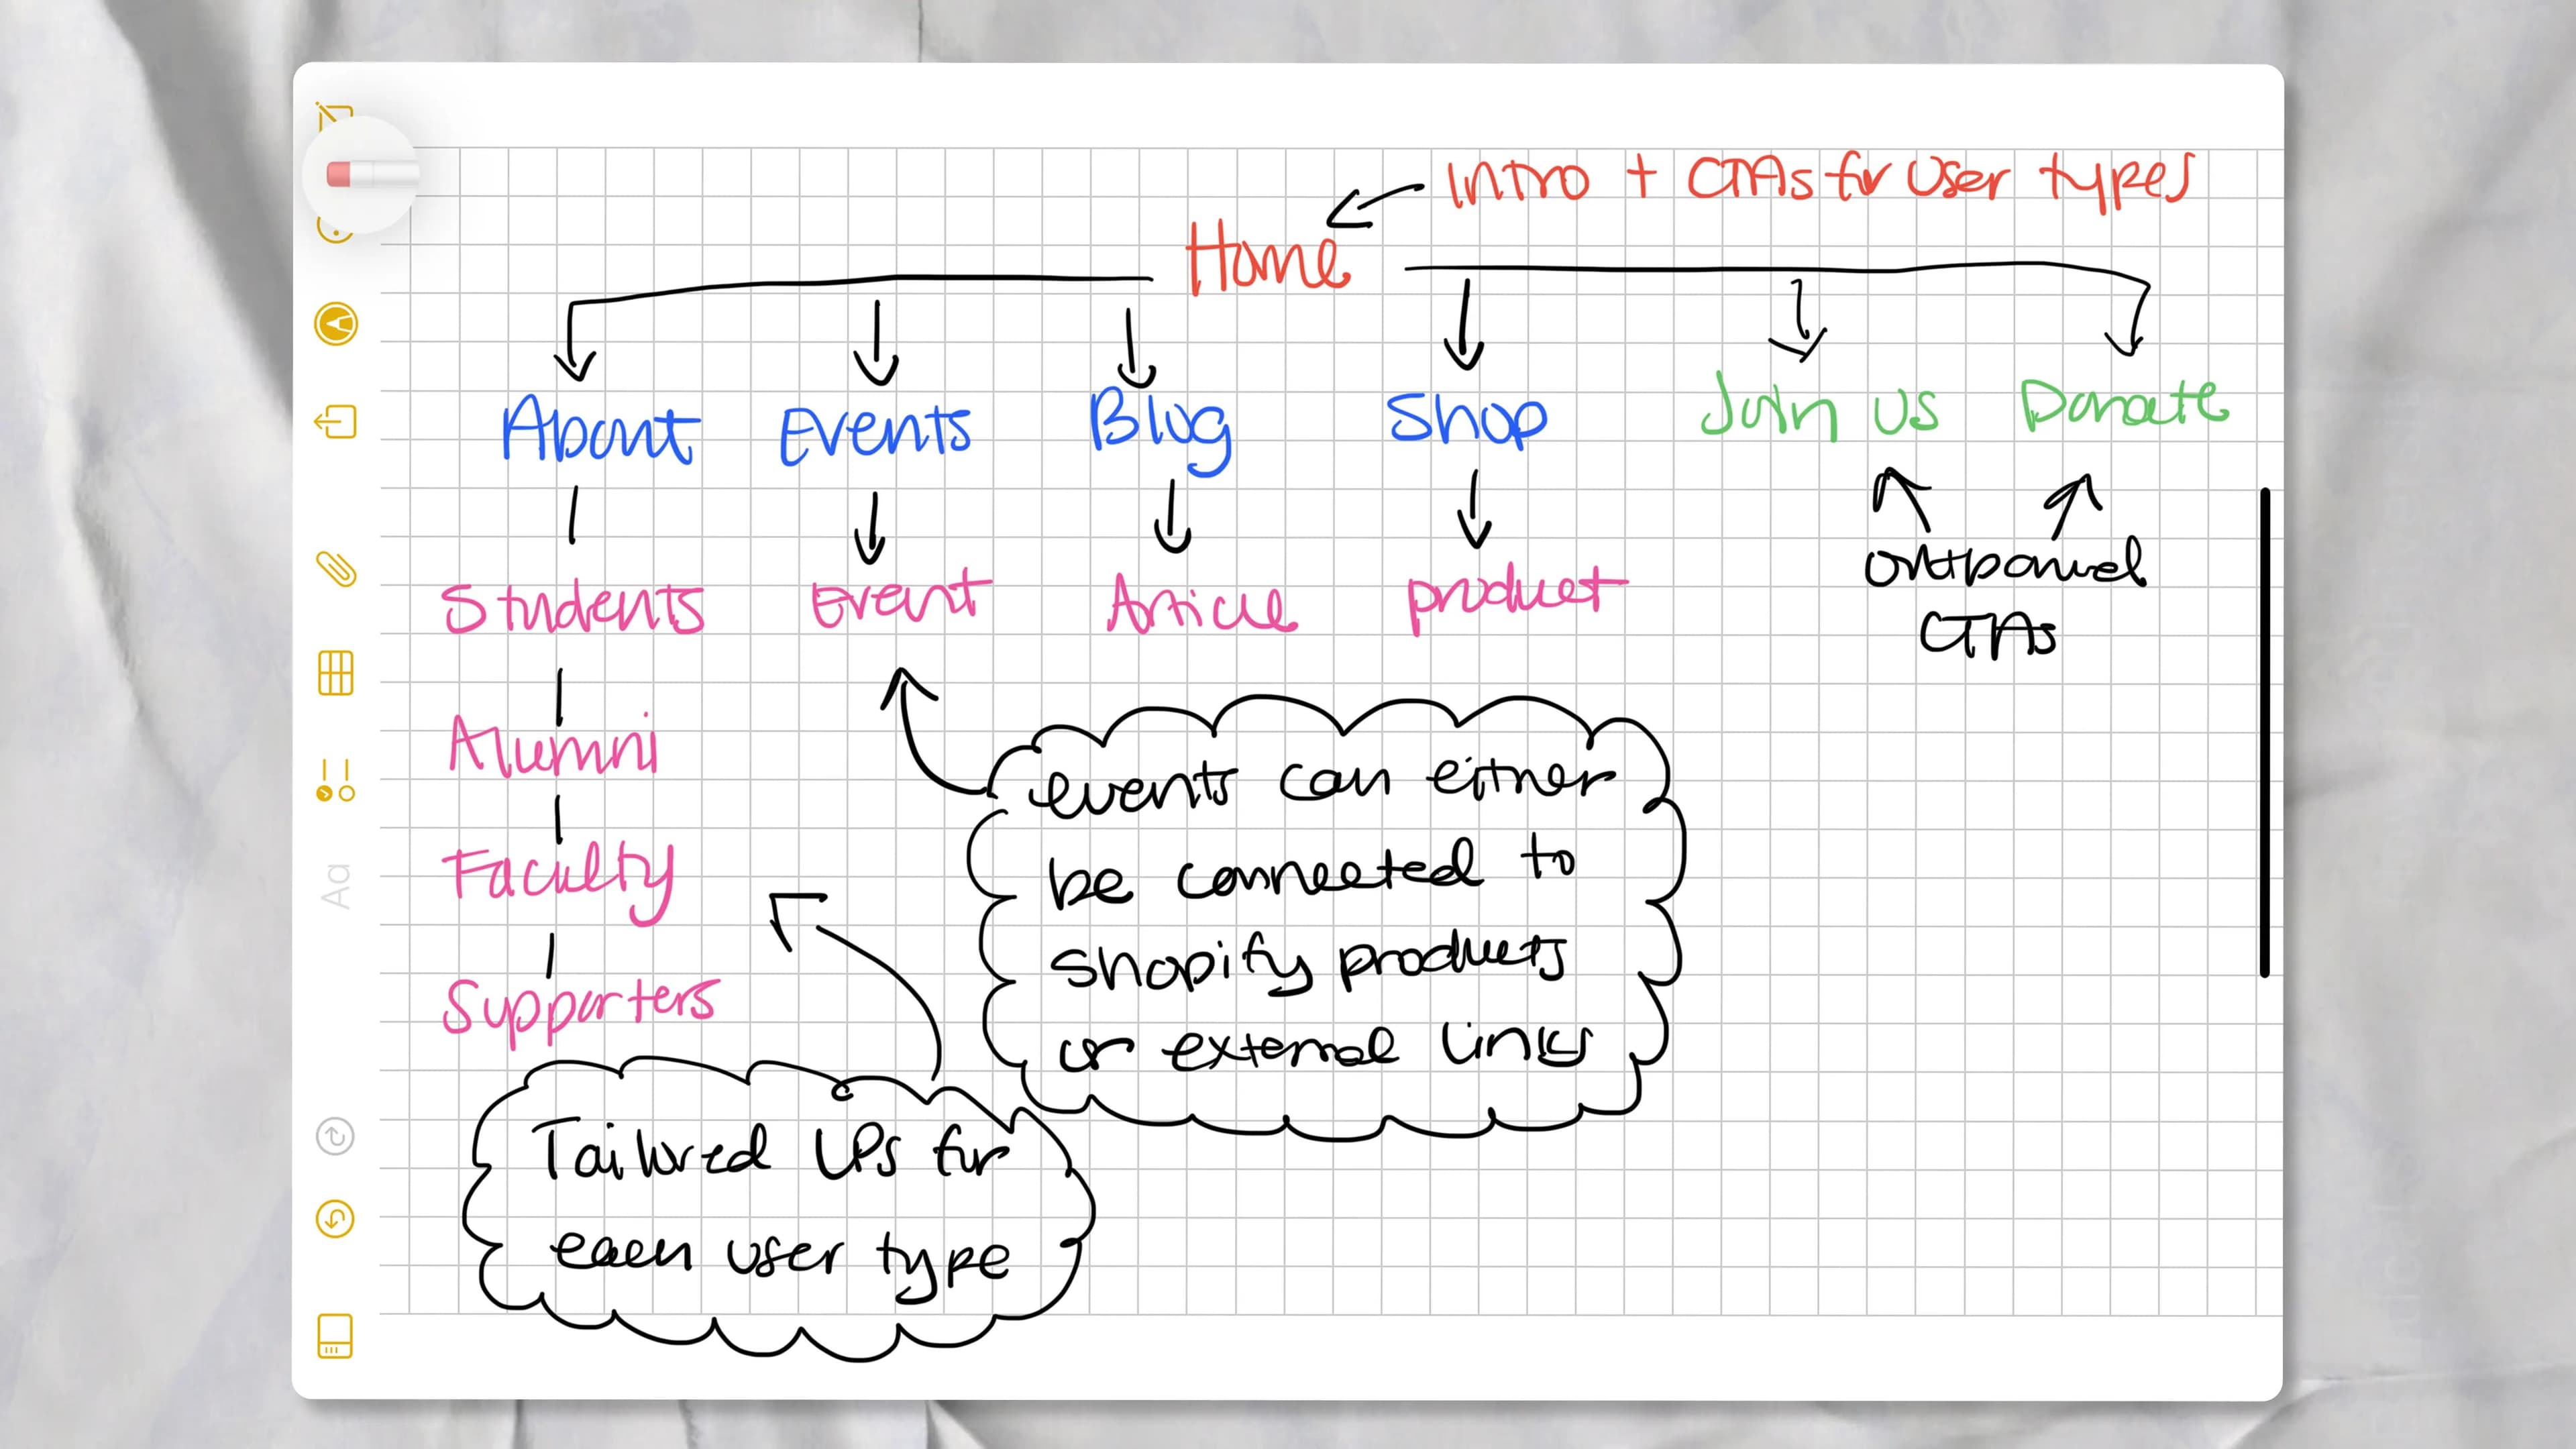 Intro + CTAs for user types
Home
About Events Blog Shop Join us Donate
Students Event Article product
outbound
CTAs
Alumni
Faculty
Supporters
events can either
be connected to
shopify products
or external links
Tailored LPs for
each user type
Aa